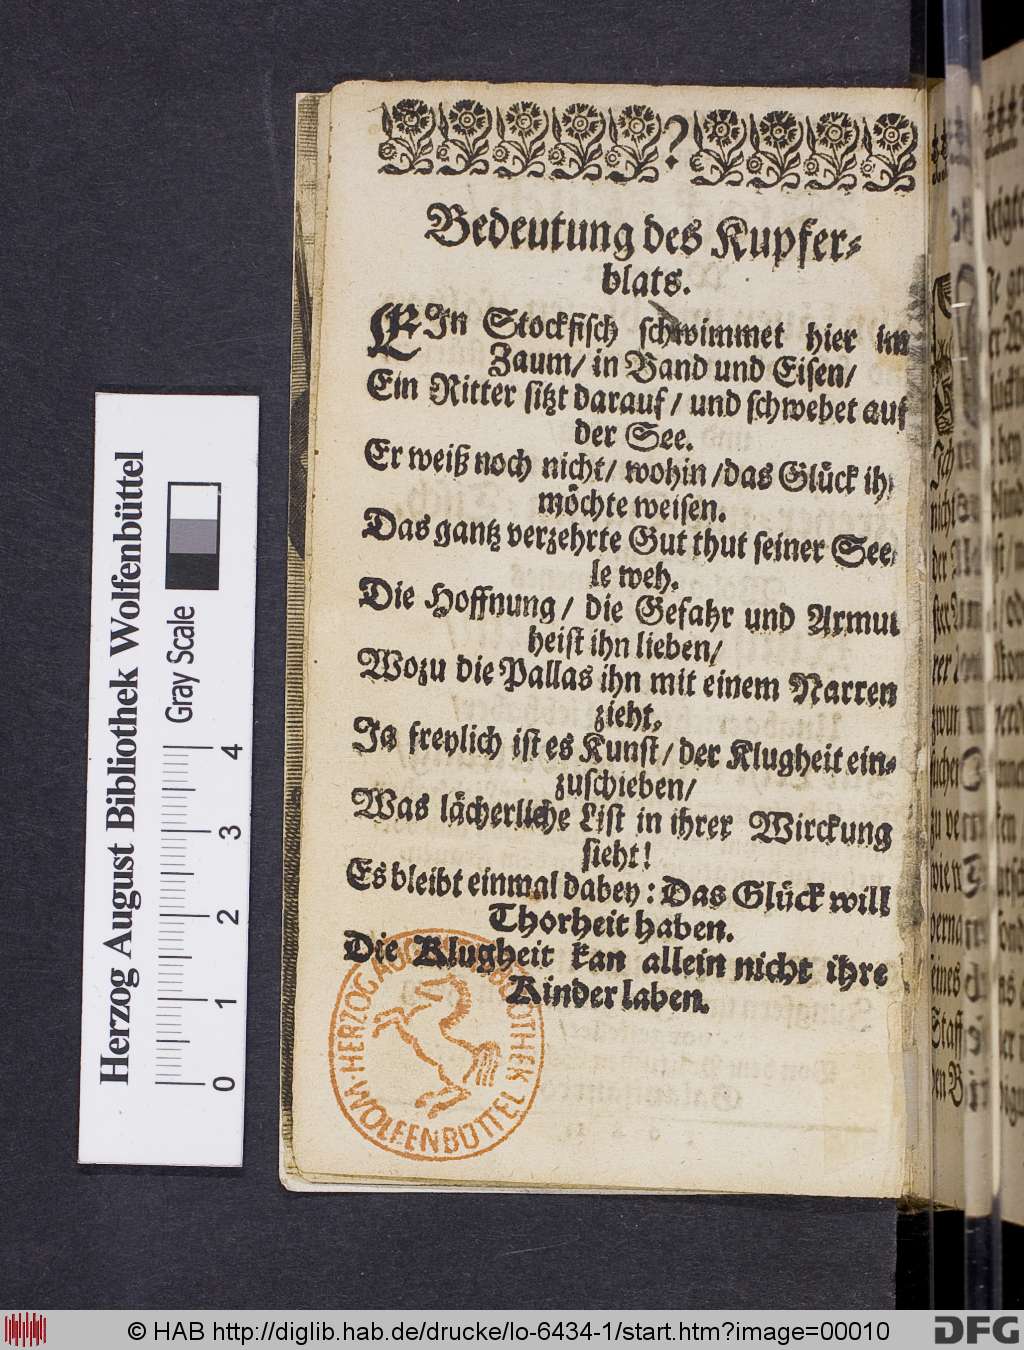 ?
Bedeutung des Kupfer-
blats.
EIn Stockfisch schwimmet hier im
Zaum/ in Band und Eisen/
Ein Ritter sitzt darauf / und schwebet auf
der See.
Er weiß noch nicht/ wohin /das Glück ih
möchte weisen.
Das gantz verzehrte Gut thut seiner See
le weh.
Die Hoffnung / die Gefahr und Armut
heist ihn lieben/
Wozu die Pallas ihn mit einem Narren
zieht.
Ja freylich ist es Kunst/ der Klugheit ein-
zuschieben/
Was lächerliche List in ihrer Wirckung
sieht!
Es bleibt einmal dabey: Das Glück will
Thorheit haben.
Die Klugheit kan allein nicht ihre
Kinder laben.
HERZOG AUGUST BIBLIOTHEK
WOLFENBÜTTEL
Herzog August Bibliothek Wolfenbüttel
Gray Scale
0 1 2 3 4
© HAB http://diglib.hab.de/drucke/lo-6434-1/start.htm?image=00010
DFG